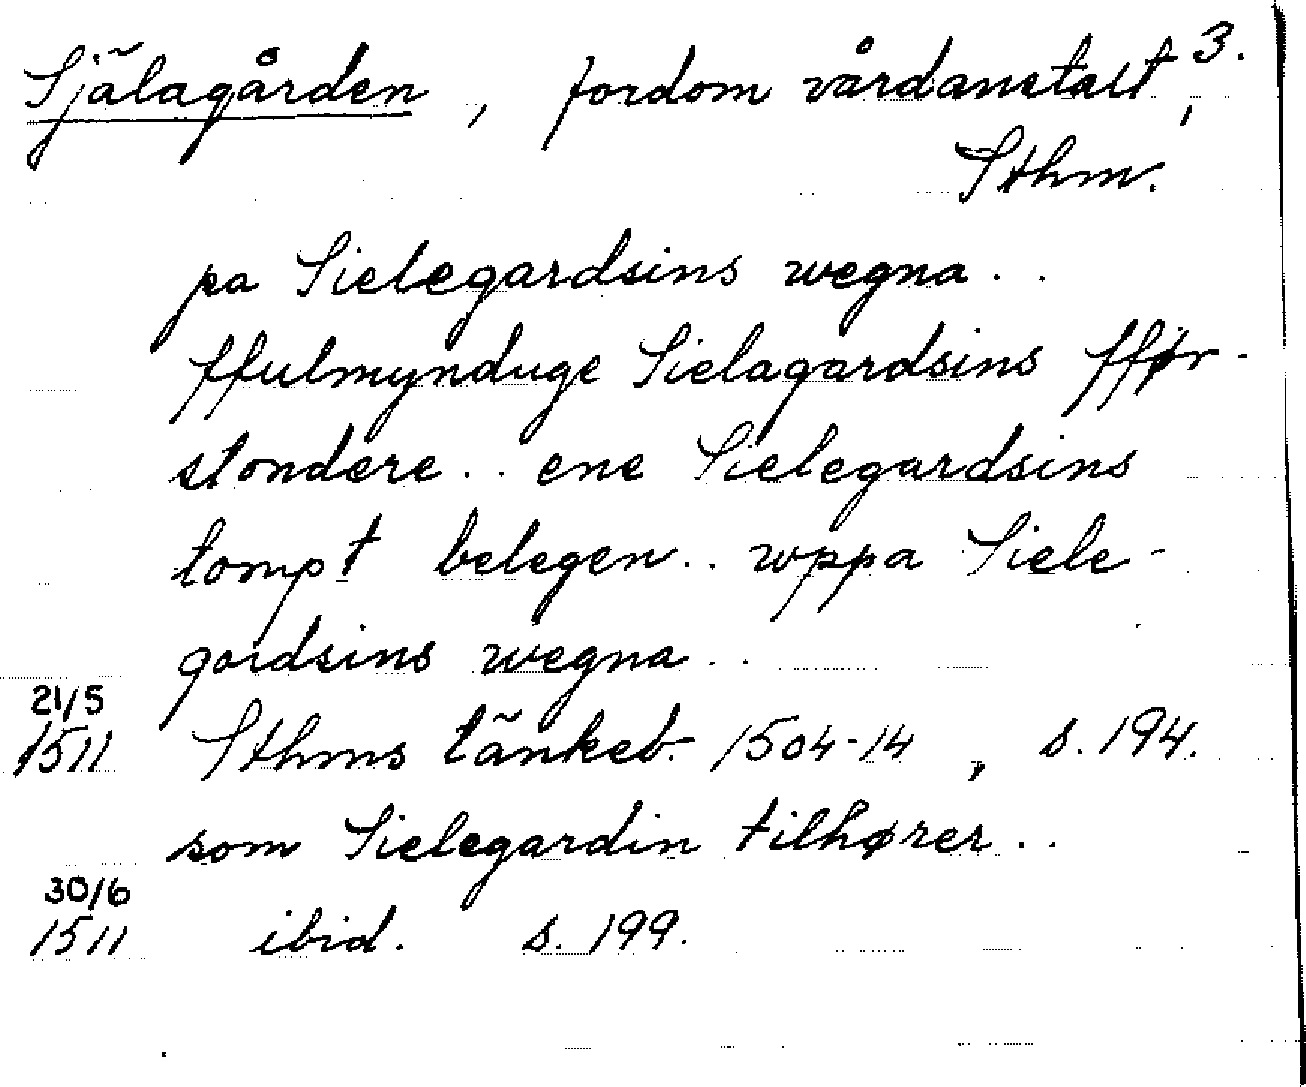 3.
Själagården, fordom vårdanstalt,
Sthm.
pa Sielegardsins wegna ..
ffulmynduge Sielagardsins fför-
stondere .. ene Sielegardsins
tompt belegen .. wppa Siele-
gardsins wegna ..
21/5
1511 Sthms tänkeb. 1504-14, s. 194.
som Sielegardin tilhører ..
30/6
1511 ibid. s. 199.